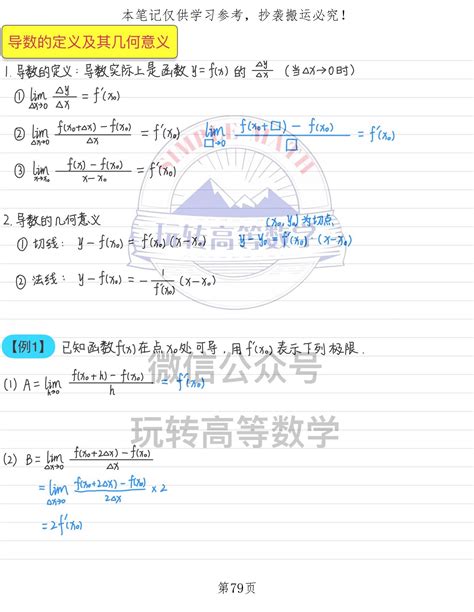 本笔记仅供学习参考，抄袭搬运必究！
导数的定义及其几何意义
1. 导数的定义：导数实际上是函数 y=f(x) 的 Δy/Δx （当Δx→0时）
① lim Δx→0 Δy/Δx = f'(x₀)
② lim Δx→0 (f(x₀+Δx)-f(x₀))/Δx = f'(x₀) lim □→0 (f(x₀+□)-f(x₀))/□ = f'(x₀)
③ lim x→x₀ (f(x)-f(x₀))/(x-x₀) = f'(x₀)
SIMPLE MATH
2. 导数的几何意义 (x₀, y₀)为切点
① 切线： y-f(x₀) = f'(x₀)(x-x₀) y-y₀ = f'(x₀)·(x-x₀)
玩转高等数学
② 法线： y-f(x₀) = -1/f'(x₀) (x-x₀)
【例1】 已知函数f(x)在点x₀处可导，用f'(x₀)表示下列极限.
微信公众号
(1) A = lim h→0 (f(x₀+h)-f(x₀))/h = f'(x₀)
玩转高等数学
(2) B = lim Δx→0 (f(x₀+2Δx)-f(x₀))/Δx
= lim Δx→0 (f(x₀+2Δx)-f(x₀))/2Δx × 2
= 2f'(x₀)
第79页